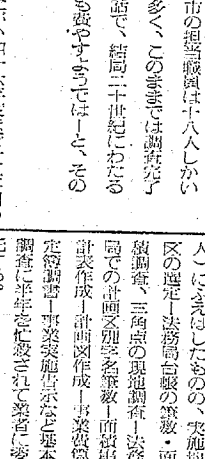 市の担当職員は十八人しかい
多く、このままでは調査完了
話で、結局二十世紀にわたる
も費やすようでは―と、その
人）にふえはしたものの、実施
区の選定―法務局台帳の筆数・面
積調査、三角点の現地調査―法務
局での計画区別字名筆数―面積集
計表作成―計画図作成―事業費算
定簿調書―事業実施告示など基本
調査に半年を忙殺されて業者に委